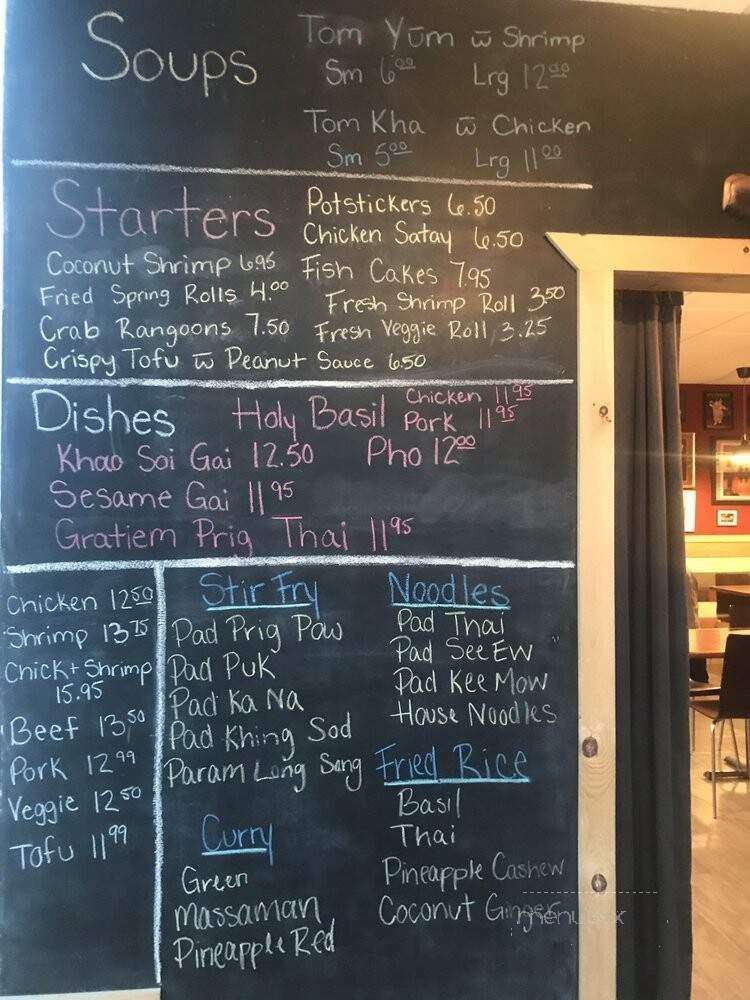 Soups
Tom Yum w̄ Shrimp
Sm 6.00 Lrg 12.00
Tom Kha w̄ Chicken
Sm 5.00 Lrg 11.00
Starters
Potstickers 6.50
Chicken Satay 6.50
Coconut Shrimp 6.95
Fish Cakes 7.95
Fried Spring Rolls 4.00
Fresh Shrimp Roll 3.50
Crab Rangoons 7.50
Fresh Veggie Roll 3.25
Crispy Tofu w̄ Peanut Sauce 6.50
Dishes
Holy Basil Chicken 11.95
Pork 11.95
Khao Soi Gai 12.50 Pho 12.00
Sesame Gai 11.95
Gratiem Prig Thai 11.95
Chicken 12.50
Shrimp 13.75
Chick + Shrimp
15.95
Beef 13.50
Pork 12.99
Veggie 12.50
Tofu 11.99
Stir Fry
Pad Prig Pow
Pad Puk
Pad Ka Na
Pad Khing Sod
Param Long Song
Curry
Green
Massaman
Pineapple Red
Noodles
Pad Thai
Pad See Ew
Pad Kee Mow
House Noodles
Fried Rice
Basil
Thai
Pineapple Cashew
Coconut Ginger